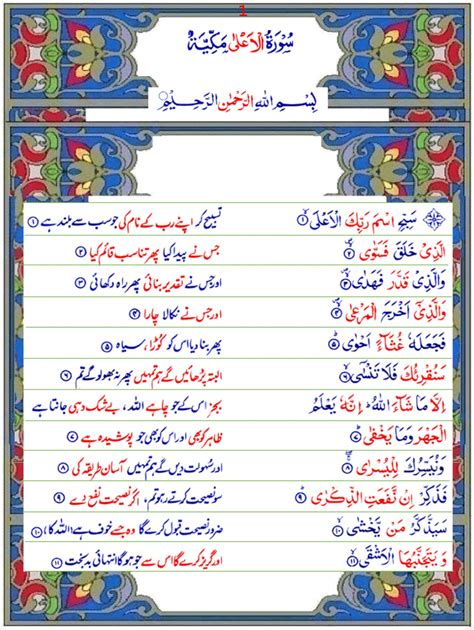 1
سُوْرَةُ الْاَعْلٰی مَكِّیَّةٌ
بِسْمِ اللّٰهِ الرَّحْمٰنِ الرَّحِیْمِ
سَبِّحِ اسْمَ رَبِّكَ الْاَعْلَی ۙ ۱ تسبیح کر اپنے رب کے نام کی جو سب سے بلند ہے ۱
الَّذِیْ خَلَقَ فَسَوّٰی ۪ۙ ۲ جس نے پیدا کیا پھر تناسب قائم کیا ۲
وَالَّذِیْ قَدَّرَ فَهَدٰی ۪ۙ ۳ اور جس نے تقدیر بنائی پھر راہ دکھائی ۳
وَالَّذِیْۤ اَخْرَجَ الْمَرْعٰی ۪ۙ ۴ اور جس نے نکالا چارا ۴
فَجَعَلَهٗ غُثَآءً اَحْوٰی ؕ ۵ پھر بنا دیا اس کو کُوڑا، سیاہ ۵
سَنُقْرِئُكَ فَلَا تَنْسٰۤی ۙ ۶ البتہ پڑھائیں گے ہم تمہیں پھر نہ بھولو گے تم ۶
اِلَّا مَا شَآءَ اللّٰهُ ؕ اِنَّهٗ یَعْلَمُ بجز اس کے جو چاہے اللہ، بے شک وہی جانتا ہے
الْجَهْرَ وَمَا یَخْفٰی ؕ ۷ ظاہر کو بھی اور اس کو بھی جو پوشیدہ ہے ۷
وَنُیَسِّرُكَ لِلْیُسْرٰی ۚۖ ۸ اور سُہولت دیں گے ہم تمہیں آسان طریقہ کی ۸
فَذَكِّرْ اِنْ نَّفَعَتِ الذِّكْرٰی ؕ ۹ سو نصیحت کرتے رہو تم، اگر نصیحت نفع دے ۹
سَیَذَّكَّرُ مَنْ یَّخْشٰی ۙ ۱۰ ضرور نصیحت قبول کرے گا وہ جسے خوف ہے (اللہ کا) ۱۰
وَ یَتَجَنَّبُهَا الْاَشْقَی ۙ ۱۱ اور گریز کرے گا اس سے جو ہو گا انتہائی بد بخت ۱۱